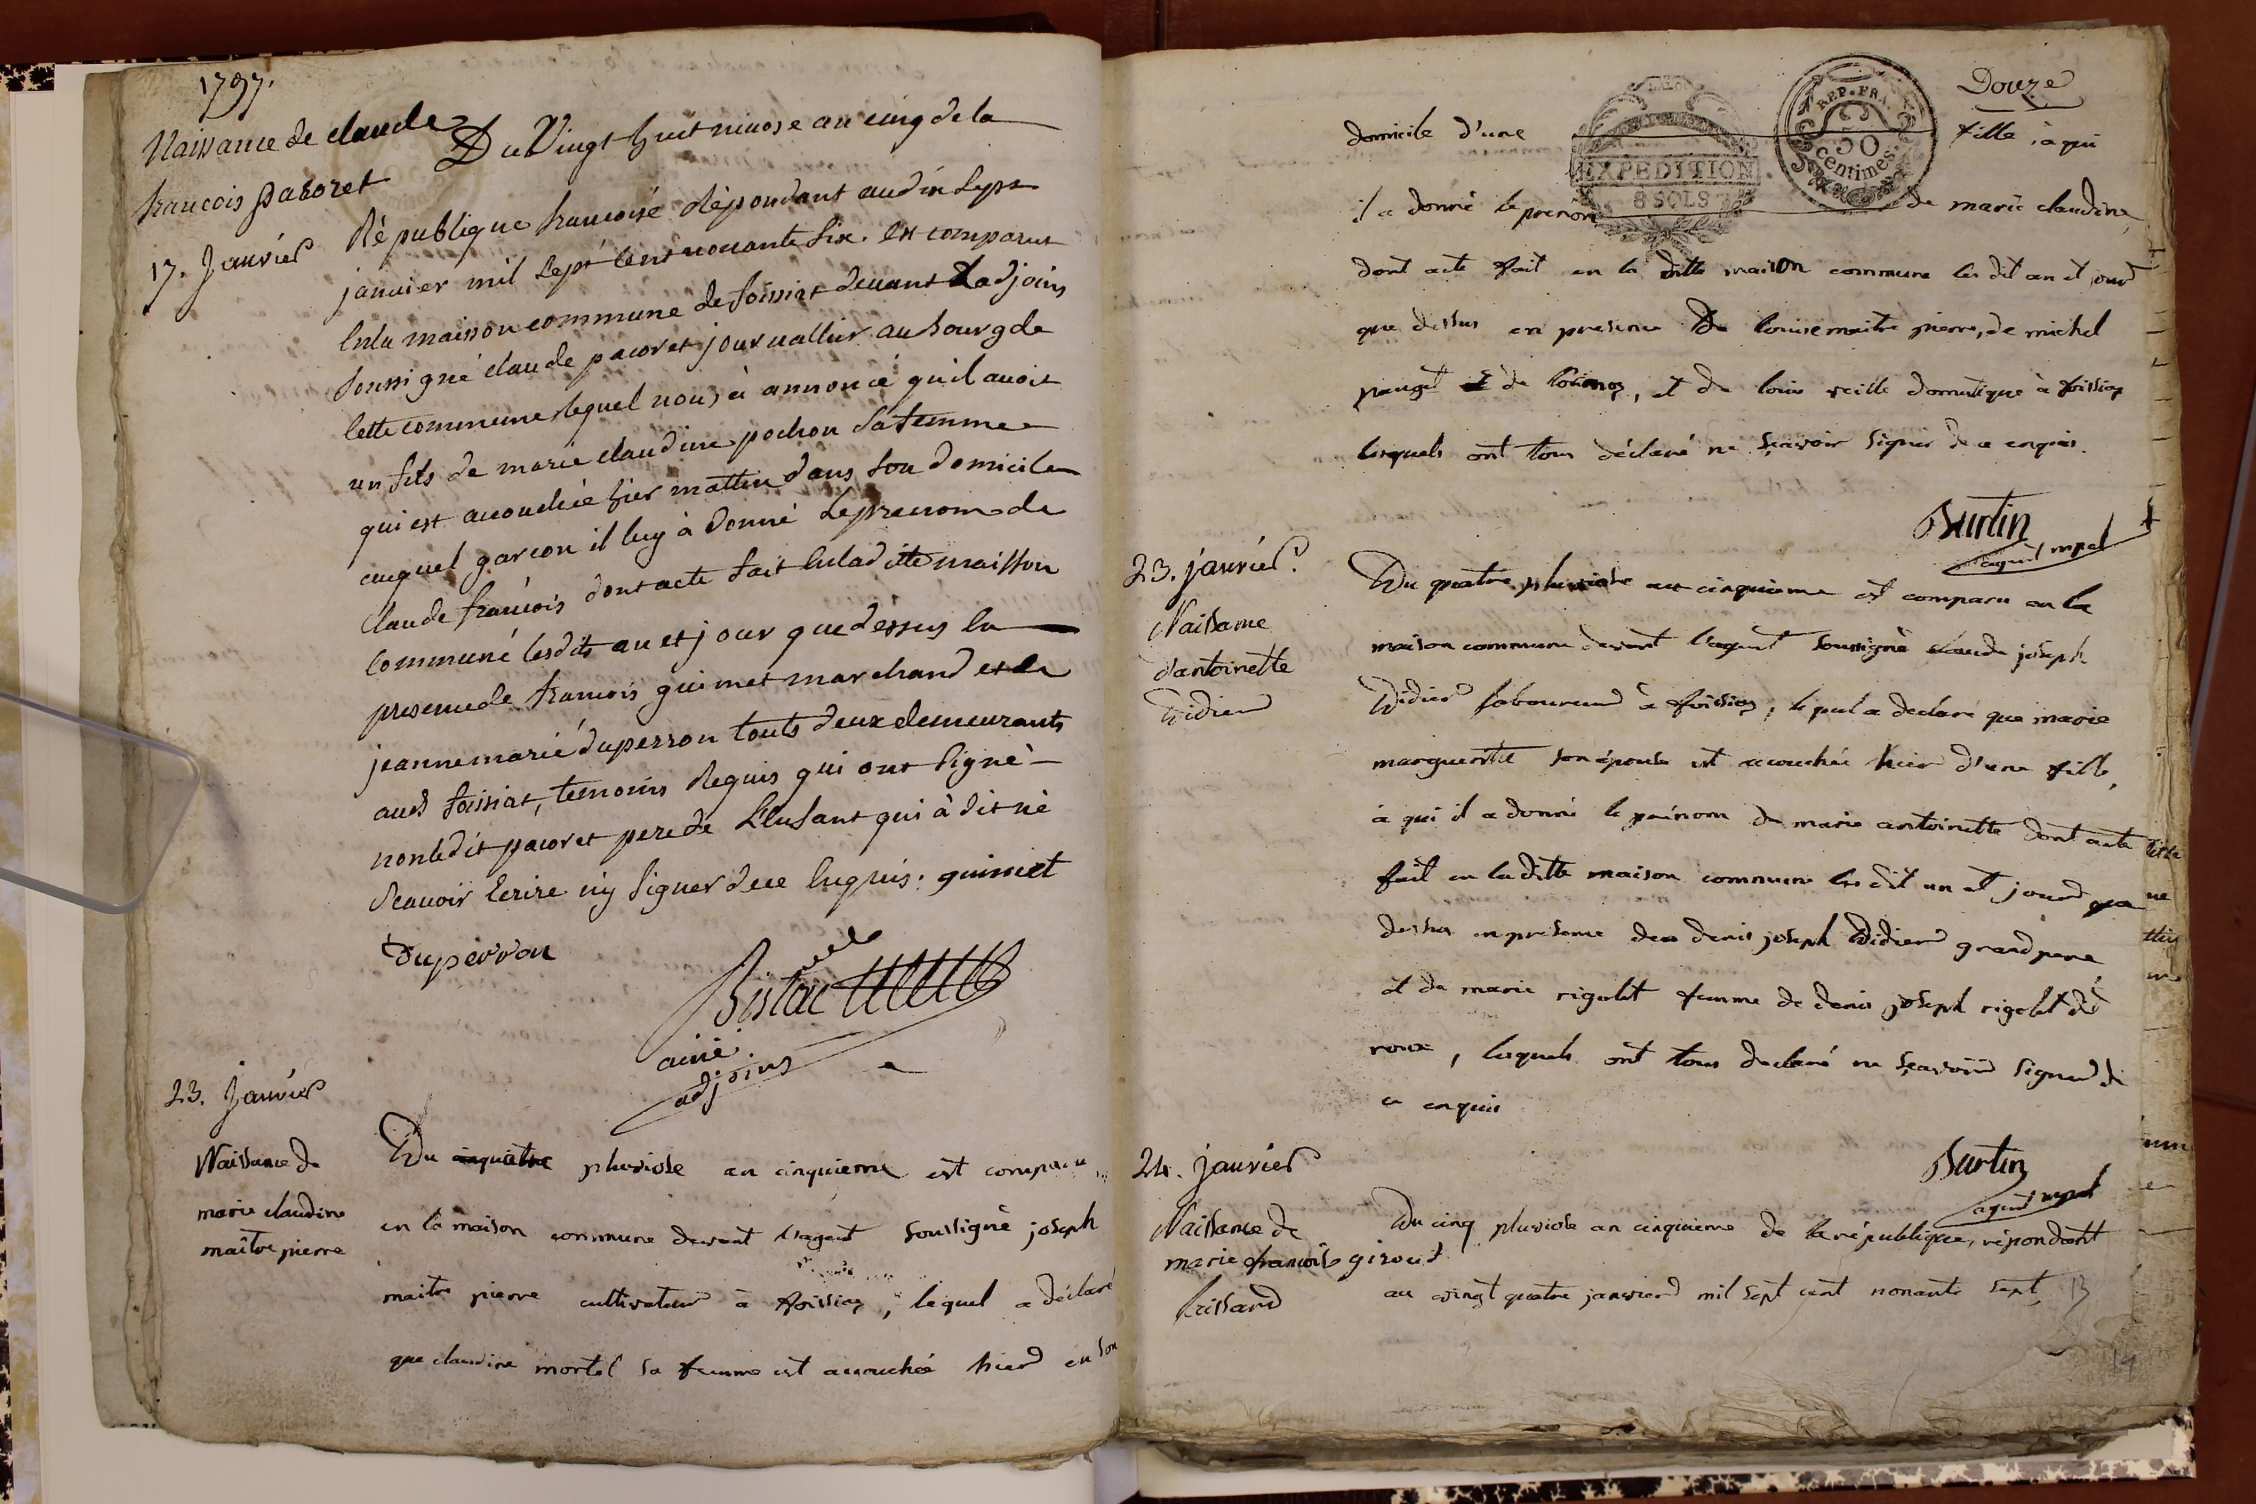 1797.
Naissance de claude
francois pacoret
17. Janvier
Du Vingt huit nivose an cinq de la
République francoise répondant au dix sept
janvier mil sept cent nonante six. est comparut
en la maison commune de foissiat devant Ladjoins
soussigné claude pacoret journallier au bourg de
cette commune lequel nous à annoncé qu'il avoit
un fils de marie claudine pochon sa femme
qui est acouchée hier mattin dans son domicile
auquel garcon il luy à donné le prenom de
claude francois dont acte fait en la ditte maisson
communé lesdits an et jour que dessus en
presence de francois guimet marchand et de
jeanne marie duperron touts deux demeurants
aud foissiat, temoins requis qui ont signé
non ledit pacoret pere de l'enfant qui à dit nè
scavoir Ecrire ny signer de ce enquis. guimet
Duperron
ainé
adjoins
23. Janvier
Naissance de
marie claudine
maitre pierre
Du quatre pluviose an cinquieme est comparu
en la maison commune devant l'agent soussigné joseph
maitre pierre cultivateur à foissia, lequel a déclaré
que claudine mortel sa femme est acouchée hier en son
Douze
REP. FRA.
50
centimes.
EXPEDITION
8 SOLS
domicile d'une fille, à qui
il a donné le prenom de marie claudine,
dont acte fait en la ditte maison commune les dit an et jour
que dessus en presence De louise maitre pierre, de michel
et de louis veille domestique à foissia
lesquels ont tous déclaré ne sçavoir signer de ce enquis.
Burtin
agent mpal
23. janvier.
Naissance
d'antoinette
Didier
Du quatre pluviose an cinquieme est comparu en la
maison commune devant l'agent soussigné claude joseph
Didier laboureur à foissia, lequel a declaré que marie
marguerite son épouse est acouchée hier d'une fille,
à qui il a donné le prénom de marie antoinette dont acte
fait en la ditte maison commune les dit an et jour que
dessus en presence de denis joseph Didier grand pere
et de marie rigolet femme de denis joseph rigolet dé
roux, lesquels ont tous declaré ne sçavoir signer de
ce enquis
Burtin
agent mpal
24. janvier
Naissance de
marie francoise girout
brissard
Du cinq pluviose an cinquieme de la république, répondant
au vingt quatre janvier mil sept cent nonante sept